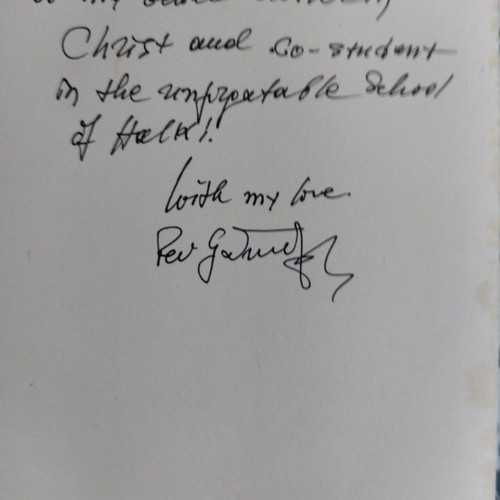 my
Christ and Co-student
in the unforgetable School
of Halki!
With my love.
Rev